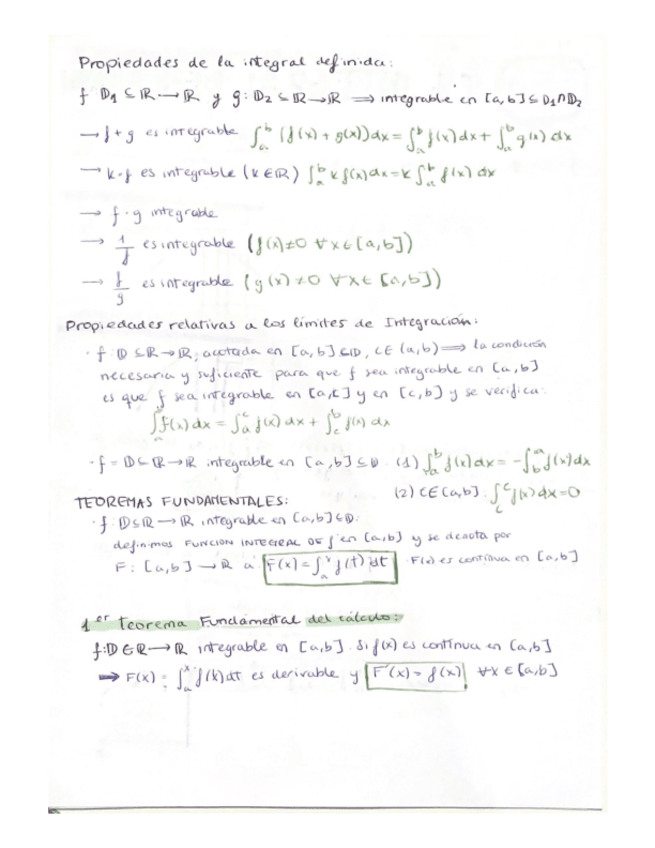 Propiedades de la integral definida:
f: D₁ ⊆ ℝ → ℝ y g: D₂ ⊆ ℝ → ℝ ⟹ integrable en [a,b] ⊆ D₁∩D₂
→ f+g es integrable ∫ₐᵇ (f(x)+g(x))dx = ∫ₐᵇ f(x)dx + ∫ₐᵇ g(x)dx
→ k·f es integrable (k∈ℝ) ∫ₐᵇ k f(x)dx = k ∫ₐᵇ f(x) dx
→ f·g integrable
→ 1/f es integrable (f(x)≠0 ∀x∈[a,b])
→ f/g es integrable (g(x)≠0 ∀x∈[a,b])
Propiedades relativas a los límites de Integración:
· f: D ⊆ ℝ → ℝ, acotada en [a,b] ⊆ D, c∈(a,b) ⟹ la condición
necesaria y suficiente para que f sea integrable en [a,b]
es que f sea integrable en [a,c] y en [c,b] y se verifica:
∫ₐᵇ f(x)dx = ∫ₐᶜ f(x)dx + ∫_c^b f(x)dx
· f = D ⊆ ℝ → ℝ integrable en [a,b] ⊆ D. (1) ∫ₐᵇ f(x)dx = -∫_b^a f(x)dx
(2) c∈[a,b]. ∫_c^c f(x)dx = 0
TEOREMAS FUNDAMENTALES:
· f: D ⊆ ℝ → ℝ integrable en [a,b] ⊆ D:
definimos FUNCION INTEGRAL DE f en [a,b] y se denota por
F: [a,b] → ℝ a F(x) = ∫ₐˣ f(t) dt · F(x) es continua en [a,b]
1er Teorema Fundamental del cálculo:
f: D ∈ ℝ → ℝ integrable en [a,b]. Si f(x) es continua en [a,b]
⟹ F(x) = ∫ₐˣ f(t)dt es derivable y F'(x) = f(x) ∀x ∈ [a,b]